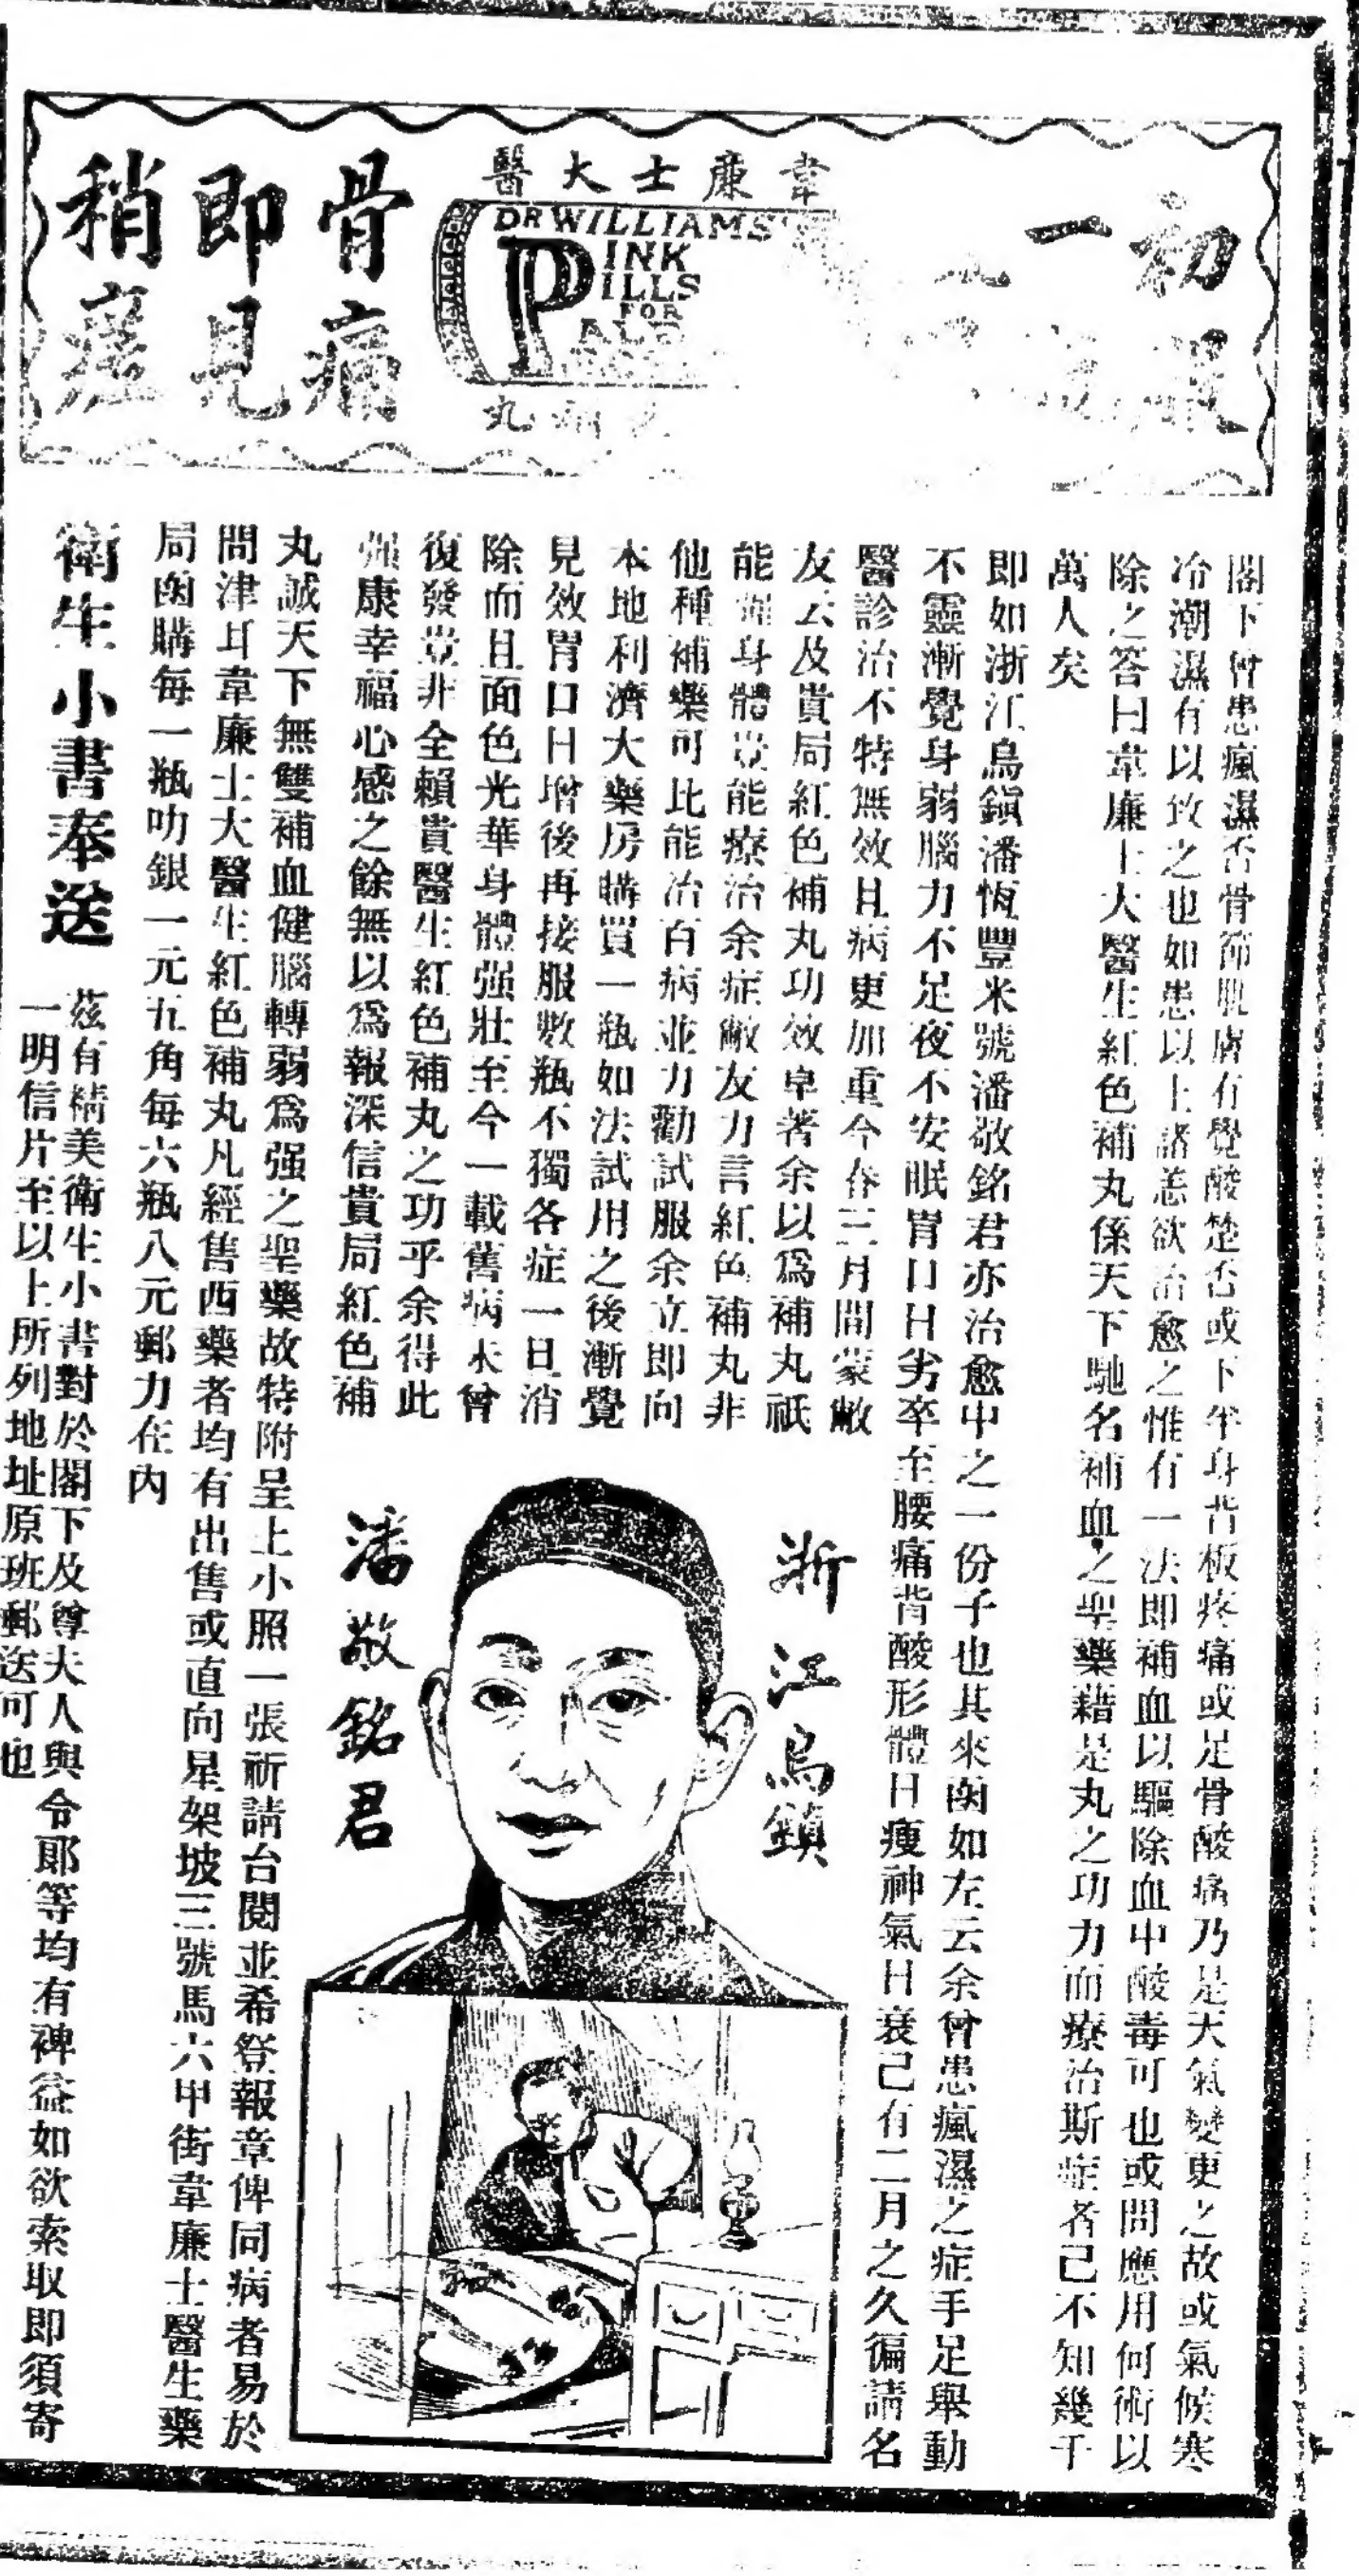 初
一
骨痛
即見
稍瘥
韋廉士大醫
DR WILLIAMS'
PINK
PILLS
FOR
丸
閣下曾患瘋濕否骨節肌膚有覺酸楚否或下半身背板疼痛或足骨酸痛乃是天氣變更之故或氣候寒
冷潮濕有以致之也如患以上諸恙欲治愈之惟有一法即補血以驅除血中酸毒可也或問應用何術以
除之答曰韋廉士大醫生紅色補丸係天下馳名補血之聖藥藉是丸之功力而療治斯症者己不知幾千
萬人矣
即如浙江烏鎭潘恆豐米號潘敬銘君亦治愈中之一份子也其來函如左云余曾患瘋濕之症手足舉動
不靈漸覺身弱腦力不足夜不安眠胃口日劣卒至腰痛背酸形體日瘦神氣日衰己有二月之久徧請名
醫診治不特無效且病更加重今春三月間蒙敝
友云及貴局紅色補丸功效卓著余以爲補丸祇
能強身體豈能療治余症敝友力言紅色補丸非
他種補藥可比能治百病並力勸試服余立即向
本地利濟大藥房購買一瓶如法試用之後漸覺
見效胃口日增後再接服數瓶不獨各症一旦消
除而且面色光華身體强壯至今一載舊病未曾
復發豈非全賴貴醫生紅色補丸之功乎余得此
强康幸福心感之餘無以爲報深信貴局紅色補
丸誠天下無雙補血健腦轉弱爲强之聖藥故特附呈上小照一張祈請台閱並希登報章俾同病者易於
問津耳韋廉士大醫生紅色補丸凡經售西藥者均有出售或直向星架坡三號馬六甲街韋廉士醫生藥
局函購每一瓶叻銀一元五角每六瓶八元郵力在內
浙江烏鎭
潘敬銘君
衛生小書奉送
茲有精美衛生小書對於閣下及尊夫人與令郎等均有裨益如欲索取即須寄
一明信片至以上所列地址原班郵送可也